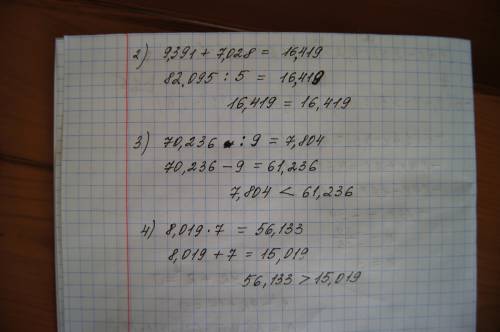 2) 9,391 + 7,028 = 16,419
82,095 : 5 = 16,419
16,419 = 16,419
3) 70,236 : 9 = 7,804
70,236 - 9 = 61,236
7,804 < 61,236
4) 8,019 · 7 = 56,133
8,019 + 7 = 15,019
56,133 > 15,019